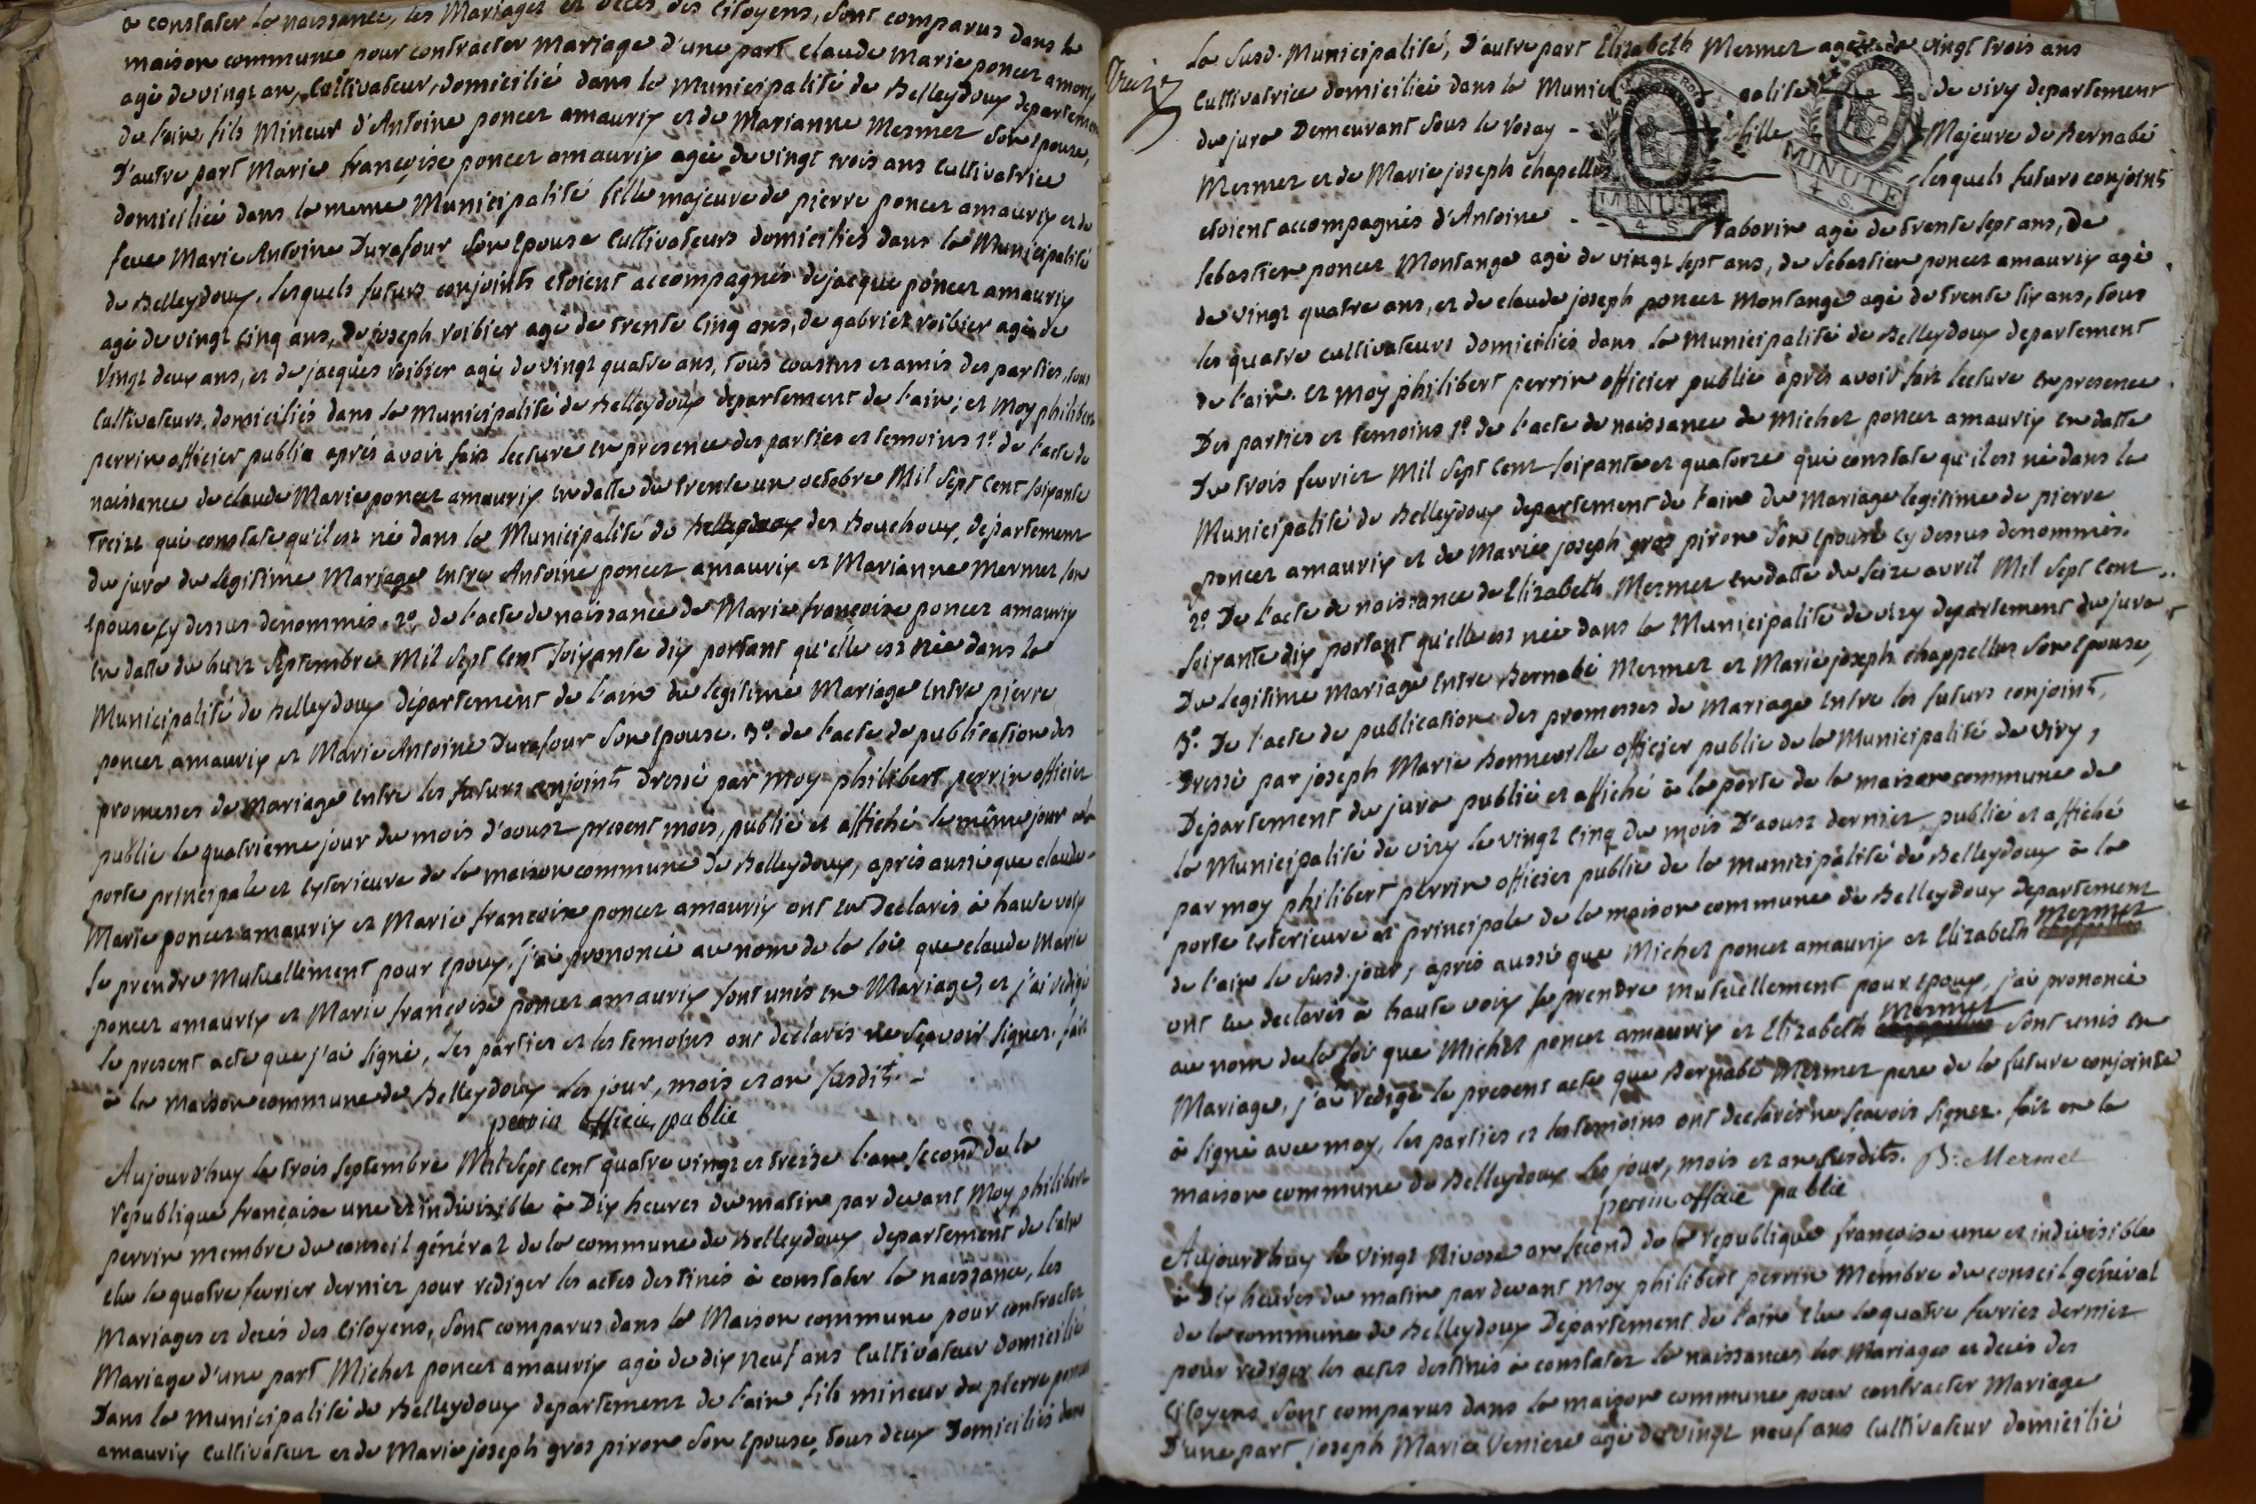 à constater la naissance, les Mariages et décès des Citoyens, sont comparus dans la
maison commune pour contracter Mariage d'une part Claude Marie poncet amauri
agé de vingt an, Cultivateur, domicilié dans la Municipalité de Belleydoux departem
de l'ain fils Mineur d'Antoine poncet amaurix et de Marianne Mermet son Epouse,
D'autre part Marie françoise poncet amaurix agée de vingt trois ans Cultivatrice
domiciliée dans la meme Municipalité fille majeure de pierre poncet amaurix et de
feue Marie Antoine Durafour son Epouse Cultivateurs domiciliés dans la Municipalité
de Belleydoux, lesquels futurs conjoints etoient accompagnés de jacque poncet amaurix
agé de vingt cinq ans, de joseph roibier agé de trente cinq ans, de gabriel roibier agé de
Vingt deux ans, et de jacques roibier agé de vingt quatre ans, tous cousins et amis des parties, tous
Cultivateurs domiciliés dans la Municipalité de Belleydoux departement de l'ain; et Moy philibert
perrin officier public après avoir fait lecture en presence des parties et temoins 1º de l'acte de
naissance de claude Marie poncet amaurix en datte du trente un octobre Mil Sept Cent soixante
Treize qui constate qu'il est né dans la Municipalité de Belleydoux des Bouchoux, département
du jura du legitime Mariage entre Antoine poncet amaurix et Marianne Mermet son
Epouse cy dessus denommés. 2º de l'acte de naissance de Marie françoise poncet amaurix
en datte du huit Septembre Mil Sept Cent soixante dix portant qu'elle est née dans la
Municipalité de Belleydoux département de l'ain du legitime Mariage entre pierre
poncet amaurix et Marie Antoine Durafour son Epouse. 3º de l'acte de publication des
promesses de mariage entre les futurs conjoints Dressé par Moy philibert perrin officier
public le quatrieme jour du mois d'aoust present mois, publié et affiché le même jour à la
porte principale et exterieure de la maison commune de Belleydoux, après aussi que claude
Marie poncet amaurix et Marie françoise poncet amaurix ont eu Declarés à haute voix
se prendre Mutuellement pour Epoux, j'ai prononcé au nom de la loi que claude Marie
poncet amaurix et Marie françoise poncet amaurix sont unis en Mariage, et j'ai redigé
le present acte que j'ai signé, les parties et les temoins ont declarés ne sçavoir signer. fait
à la maison commune de Belleydoux les jour, mois et an susdits.
perrin officier public
Aujourd'huy le trois septembre Mil Sept cent quatre vingt et treize l'an second de la
republique françoise une et indivisible à Dix heures du matin par devant Moy philibert
perrin membre du conseil général de la commune de Belleydoux departement de l'ain
elu le quatre fevrier dernier pour rediger les actes destinés à constater la naissance, les
Mariages et decés des Citoyens, sont comparus dans la Maison commune pour contracter
Mariage d'une part Michel poncet amaurix agé de dix Neuf ans Cultivateur domicilié
Dans la municipalité de Belleydoux departement de l'ain fils mineur de pierre poncet
amaurix cultivateur et de Marie joseph gros piron son Epouse, tous deux Domiciliés dans
Treize
la susd. Municipalité, D'autre part Elizabeth Mermet agée de vingt trois ans
Cultivatrice domiciliée dans la Munici palité de viry departement
du jura Demeurant sous le rosay - fille Majeure de Bernabé
Mermet et de Marie joseph chapellu lesquels futurs conjoints
etoient accompagnés d'Antoine - Taborin agé de trente sept ans, de
sebastien poncet Montange agé de vingt sept ans, de sebastien poncet amaurix agé
de vingt quatre ans, et de claude joseph poncet Montange agé de trente six ans, tous
les quatre cultivateurs domiciliés dans la Municipalité de Belleydoux departement
de l'ain. et moy philibert perrin officier public après avoir fait lecture en presence
Des parties et temoins 1º de l'acte de naissance de Michel poncet amaurix en datte
Du trois fevrier Mil Sept Cent soixante et quatorze qui constate qu'il est né dans la
Municipalité de Belleydoux departement de l'ain du Mariage legitime de pierre
poncet amaurix et de Marie joseph gros piron son Epouse cy dessus denommés.
2º De l'acte de naissance de Elizabeth Mermet en datte du seize avril Mil sept Cent
Soixante dix portant qu'elle est née dans la Municipalité de viry departement du jura
Du legitime Mariage entre Bernabé Mermet et Marie joseph chappellu son Epouse,
3º De l'acte de publication des promesses de Mariage entre les futurs conjoints,
Dressé par joseph Marie Bonneville officier public de la Municipalité de viry,
Département du jura publié et affiché à la porte de la maison commune de
la Municipalité de viry le vingt cinq du mois D'aoust dernier, publié et affiché
par moy philibert perrin officier public de la municipalité de Belleydoux à la
porte exterieure et principale de la maison commune de Belleydoux departement
de l'ain le susd. jour, après aussi que Michel poncet amaurix et Elizabeth Mermet
ont eu declarés à haute voix se prendre mutuellement pour Epoux, j'ai prononcé
au nom de la loi que Michel poncet amaurix et Elizabeth Mermet sont unis en
Mariage, j'ai redigé le present acte que Bernabé Mermet pere de la future conjointe
à signé avec moy, les parties et les temoins ont declarés ne sçavoir signer. fait en la
maison commune de Belleydoux les jour, mois et an susdits. B: Mermet
perrin officie public
Aujourd'huy le vingt Nivose an second de la republique françoise une et indivisible
à Dix heures du matin par devant Moy philibert perrin Membre du conseil général
de la commune de Belleydoux Departement de l'ain elu le quatre fevrier dernier
pour rediger les actes destinés à constater la naissances les Mariages et decés des
Citoyens sont comparus dans la maison commune pour contracter Mariage
D'une part joseph Marie Veniere agé de vingt neuf ans Cultivateur domicilié
MINUTE
4 S.
MINUTE
4 S.